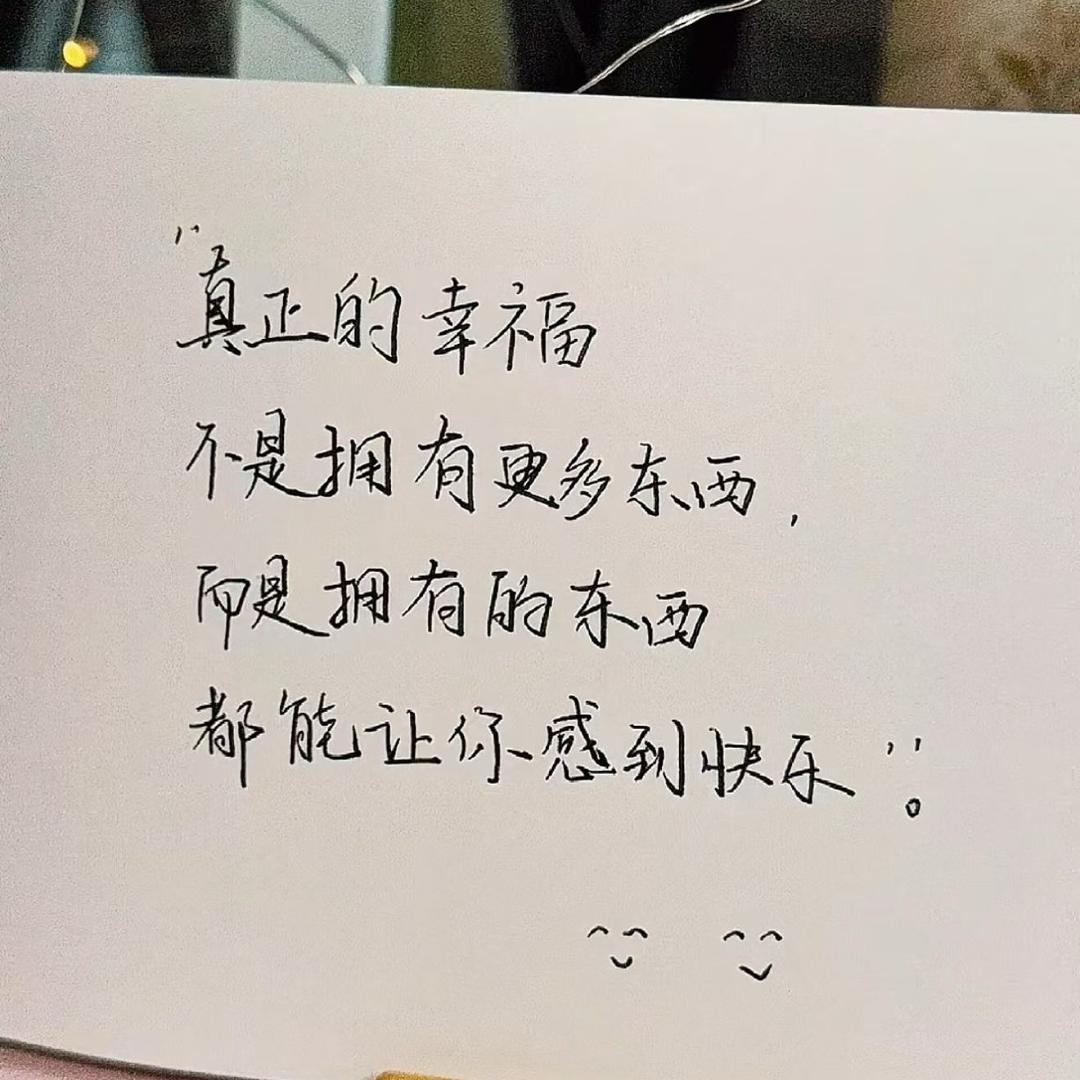 "真正的幸福
不是拥有更多东西,
而是拥有的东西
都能让你感到快乐"。